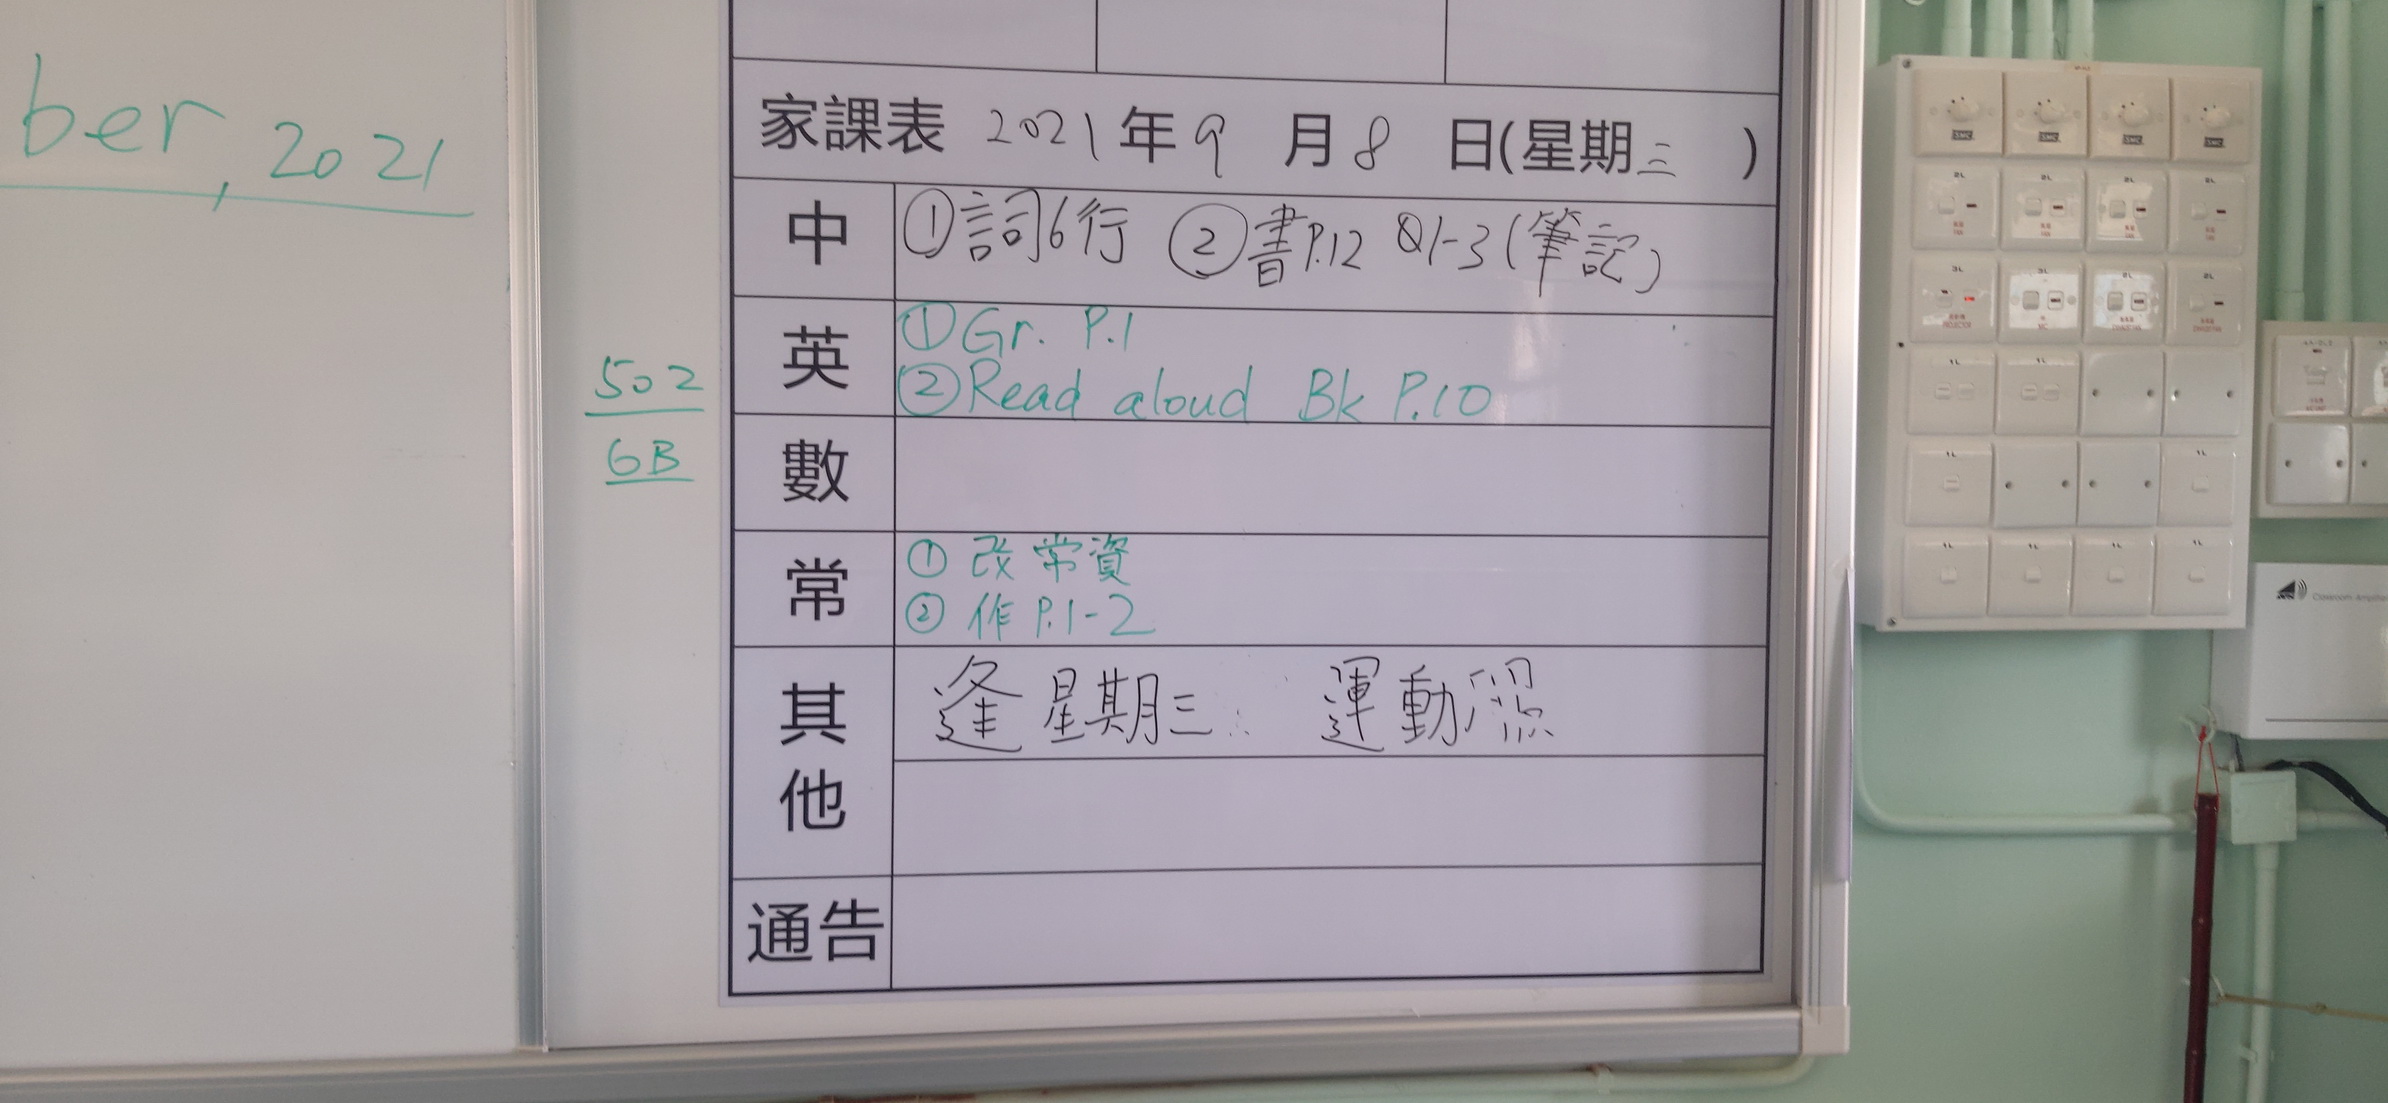 ber, 2021
家課表 2021年9月8日(星期三)
中 ①詞6行 ②書P.12 Q1-3(筆記)
英 ①Gr. P.1
②Read aloud Bk P.10
502
6B
數
常 ①改常資
②作P.1-2
其他 逢星期三 運動照
通告